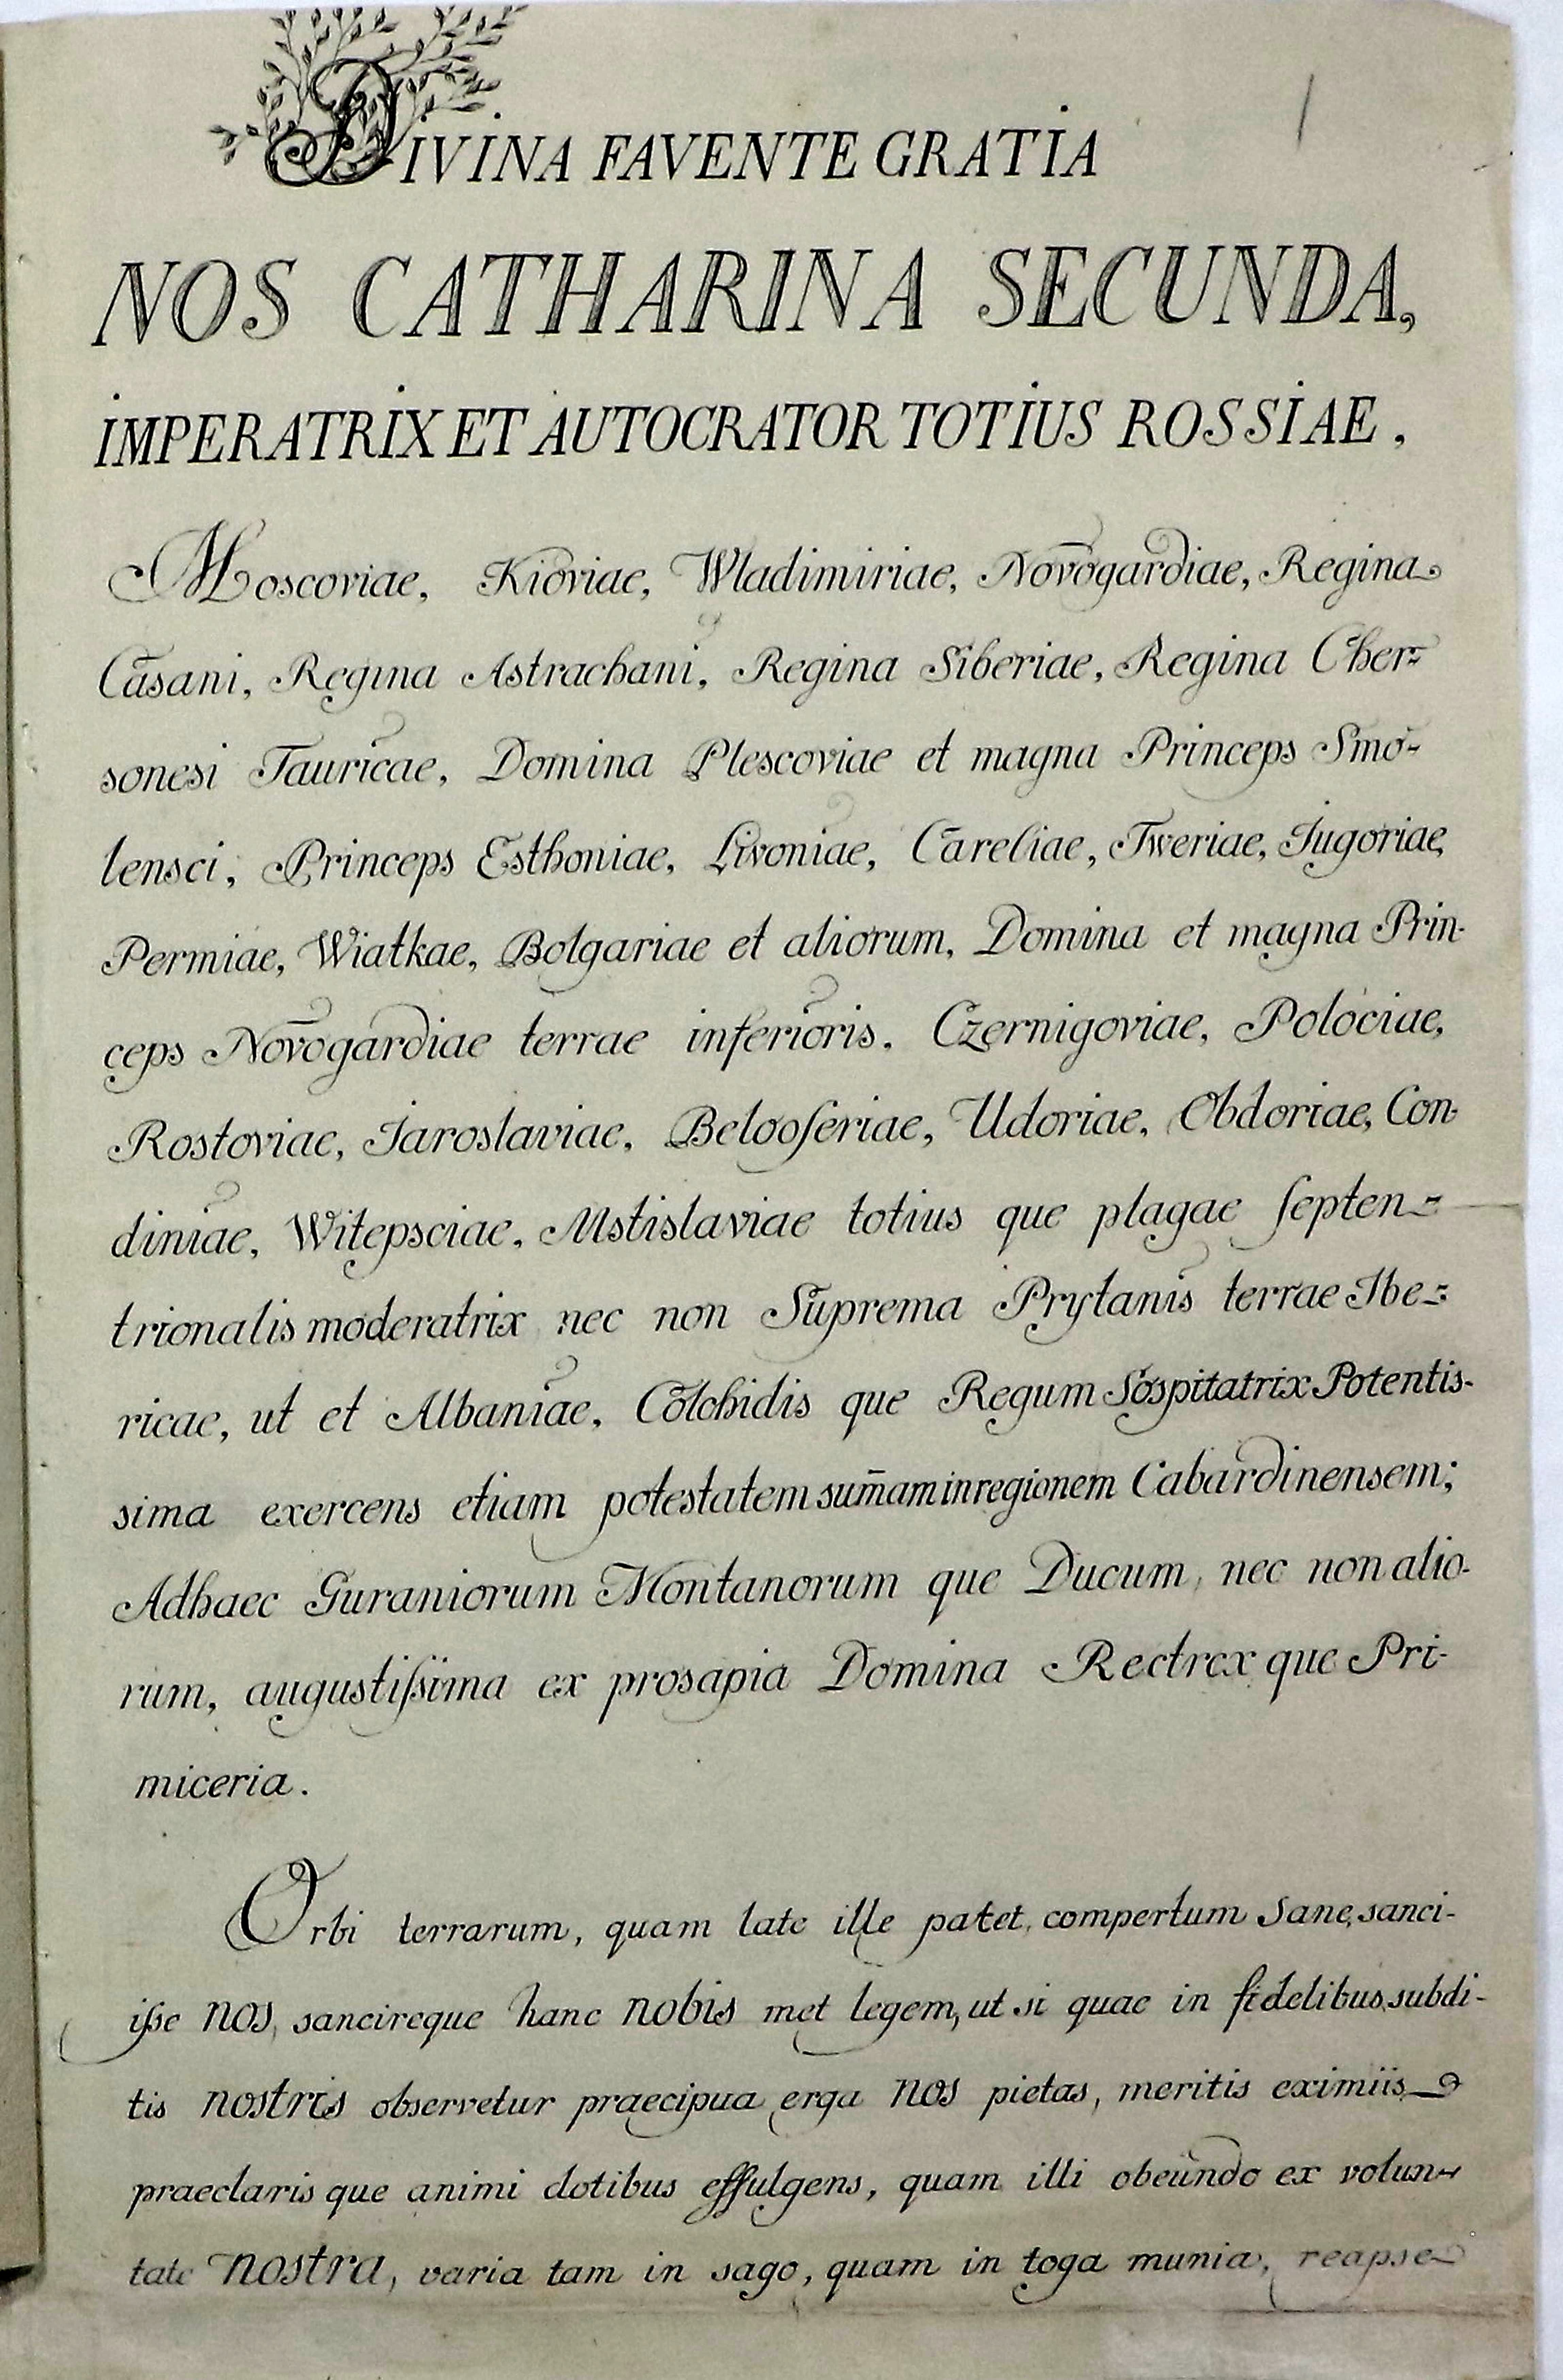 DIVINA FAVENTE GRATIA
NOS CATHARINA SECUNDA,
IMPERATRIX ET AUTOCRATOR TOTIUS ROSSIAE,
Moscoviae, Kioviae, Wladimiriae, Novogardiae, Regina
Casani, Regina Astrachani, Regina Siberiae, Regina Cher-
sonesi Tauricae, Domina Plescoviae et magna Princeps Smo-
lensci, Princeps Esthoniae, Livoniae, Careliae, Tweriae, Jugoriae,
Permiae, Wiatkae, Bolgariae et aliorum, Domina et magna Prin-
ceps Novogardiae terrae inferioris, Czernigoviae, Polociae,
Rostoviae, Jaroslaviae, Belooſeriae, Udoriae, Obdoriae, Con-
diniae, Witepsciae, Mstislaviae totius que plagae ſepten-
trionalis moderatrix nec non Suprema Prytanis terrae Ibe-
ricae, ut et Albaniae, Colchidis que Regum Sospitatrix Potentis-
sima exercens etiam potestatem sum̄am in regionem Cabardinensem;
Adhaec Guraniorum Montanorum que Ducum, nec non alio-
rum, augustiſsima ex prosapia Domina Rectrex que Pri-
miceria.
Orbi terrarum, quam late ille patet, compertum Sane, sanci-
iſse NOS, sancireque hanc NObis met legem, ut si quae in fidelibus subdi-
tis NOstris observetur praecipua erga NOS pietas, meritis eximiis
praeclaris que animi dotibus effulgens, quam illi obeundo ex volun-
tate NOstra, varia tam in sago, quam in toga munia, reapse